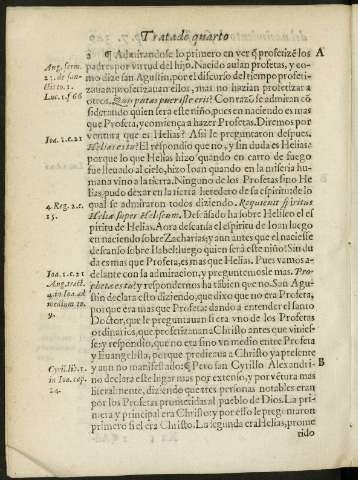 Tratado quarto
2 ¶ Admirandose lo primero en ver q̃ profetizẽ los A
padres por virtud del hijo. Nacido auian profetas, y co-
mo dize san Agustin, por el discurso del tiempo profeti-
zauan: profetizauan ellos, mas no hazian profetizar a
otros. Quis putas puer iste erit? Con razõ se admiran cõ
siderando quien sera este niño, pues en naciendo es mas
que Profeta, y comiença a hazer Profetas. Diremos por
ventura que es Helias? Assi le preguntaron despues.
Helias es tu? El respondio que no, y sin duda es Helias:
porque lo que Helias hizo quando en carro de fuego
fue lleuado al cielo, hizo Ioan quando en la miseria hu-
mana vino a la tierra. Ninguno de los Profetas sino He
lias, pudo dexar en la tierra heredero de su espiritu: de lo
qual se admiraron todos diziendo. Requieuit spiritus
Heliæ super Heliseum. Descãsado ha sobre Heliseo el es
piritu de Helias. Aora descansa el espiritu de Ioan luego
en naciendo sobre Zacharias: y aun antes que el naciesse
descanso sobre Isabel: luego quien será este niño? Sin du
da es mas que Profeta, es mas que Helias. Pues vamos a-
delante con la admiracion, y preguntemosle mas. Pro-
pheta es tu? y respondernos ha tãbien que no. San Agus
tin declara esto diziendo, que dixo que no era Profeta,
porque era mas que Profeta: dando a entender el santo
Doctor, que le preguntauan si era vno de los Profetas
ordinarios, que profetizauan a Christo antes que vinies-
se: y respondio, que no era sino vn medio entre Profeta
y Euangelista, porque predicaua a Christo ya presente
y aun no manifestado. ¶ Pero san Cyrillo Alexandri- B
no declara este lugar mas por extenso, y por vẽtura mas
literalmente, diziendo que tres personas notables eran
por los Profetas prometidas al pueblo de Dios. La pri-
mera y principal era Christo: y por esso le preguntaron
primero si el era Christo. La segunda era Helias, prome
tido
Aug. serm.
Luc. 1. f. 66
Ioa. 1. c. 21
4. Reg. 2. c.
15.
Ioa. 1. c. 21
Aug. tract.
4. in Ioa. ad
medium to.
9.
Cyril. lib. 1.
in Ioa. cap.
24.